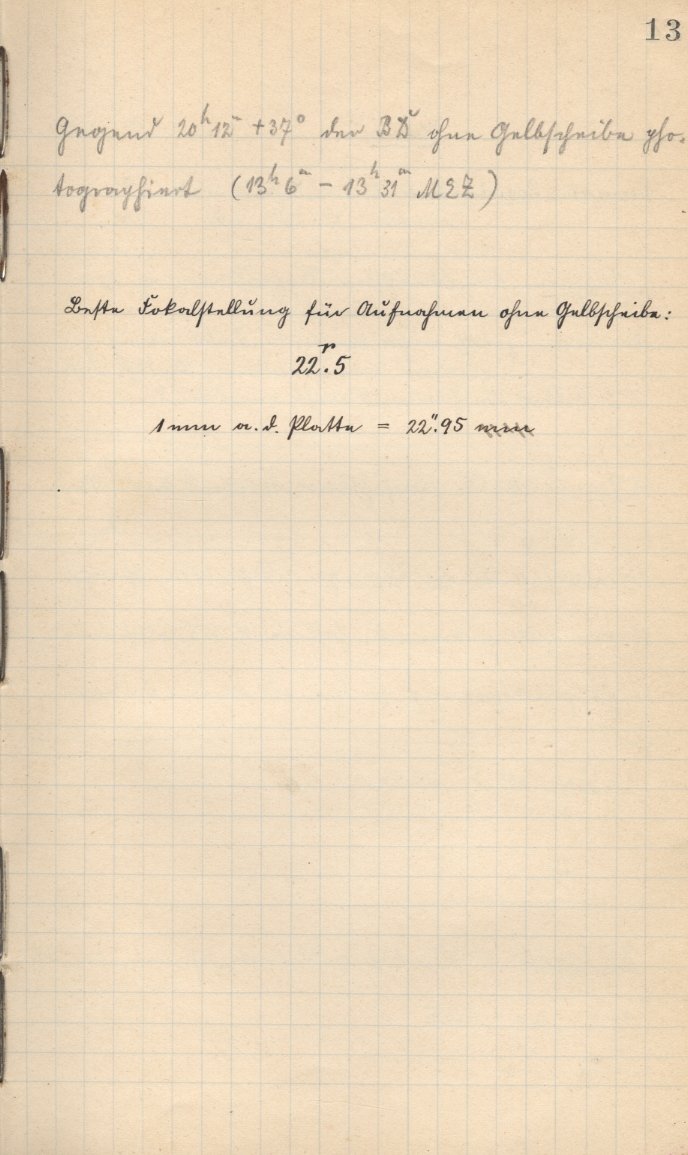 13
Gegend 20ʰ12ᵐ +37° der BD ohne Gelbscheibe pho-
tographiert (13ʰ6ᵐ – 13ʰ31ᵐ MEZ)
Beste Fokalstellung für Aufnahmen ohne Gelbscheibe:
22ʳ.5
1 mm a. d. Platte = 22".95 mm